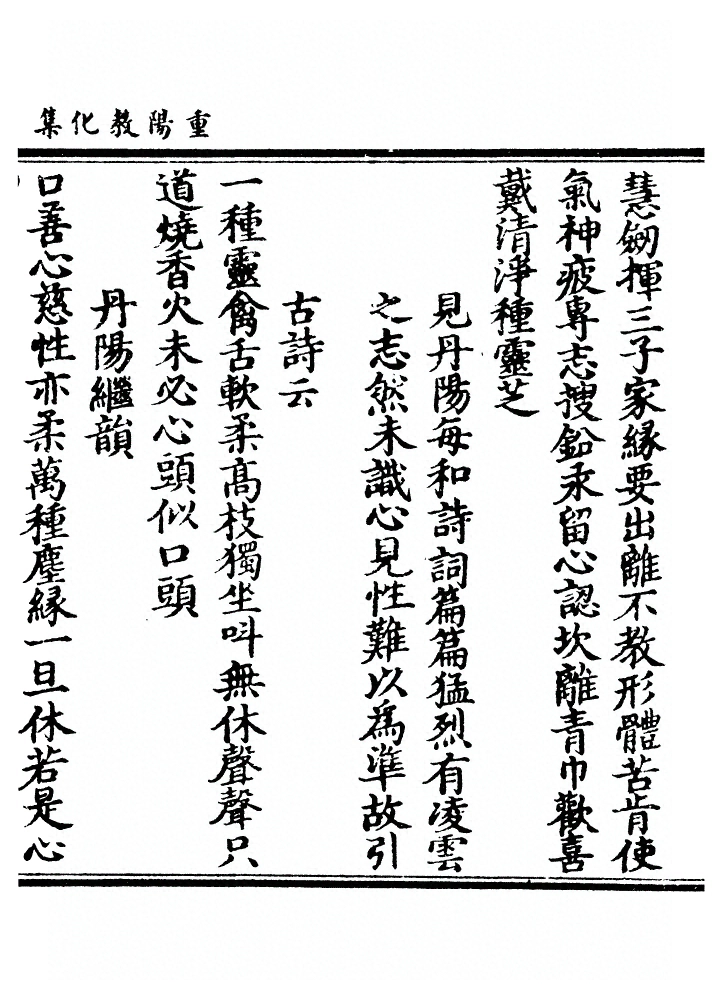 重陽教化集
慧劒揮三子家緣要出離不教形體苦肯使
氣神疲専志搜鉛汞留心認坎離青巾歡喜
戴清淨種靈芝
見丹陽每和詩詞篇篇猛烈有凌雲
之志然未識心見性難以為準故引
古詩云
一種靈禽舌軟柔高枝獨坐叫無休聲聲只
道燒香火未必心頭似口頭
丹陽繼韻
口善心慈性亦柔萬種塵緣一旦休若是心